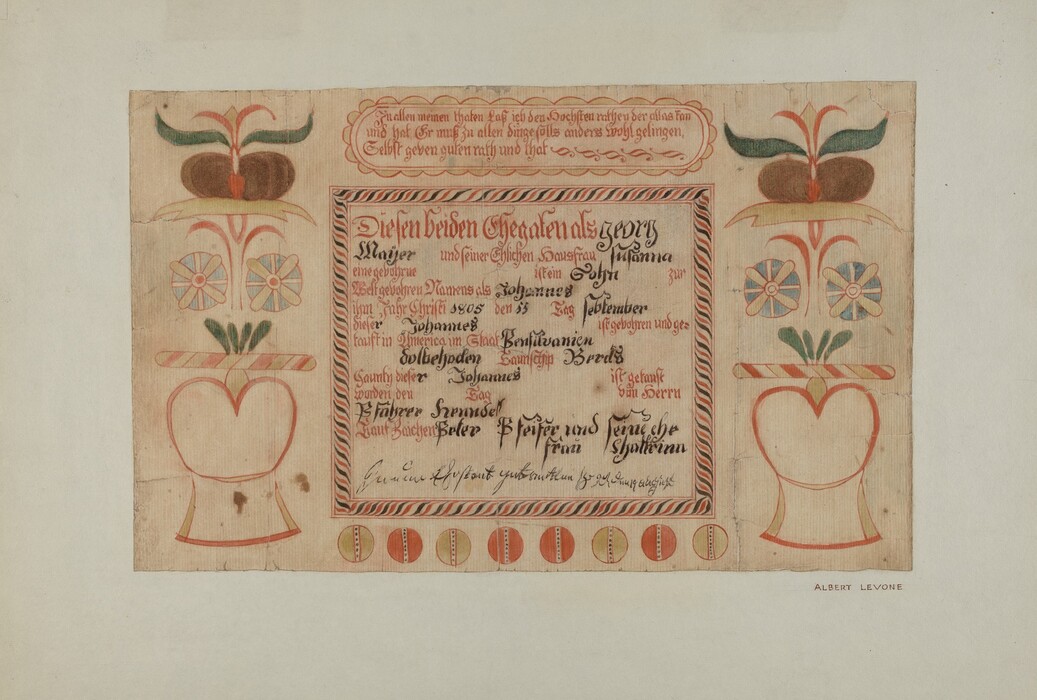 In allen meinen thaten Laß ich den Höchsten rathen der allas kan
und hat Er muß zu allen dinge sölls anders wohl gelingen,
Selbst geben guten rath und that
Diesen beiden Ehegaten als georg
Maijer und seiner Ehlichen Hausfrau susanna
eine gevohrne ist ein Sohn zur
Welt gevohren Namens als Johannes
ihm Jahr Christi 1805 den Tag september
dieser Johannes ist gevohren und ge=
tauft in America im Staat Pensilvanien
dolbehoden Taunschip Berds
Caunty dieser Johannes ist getauft
worden den Tag von Herrn
Pfahrer
Tauf Zeichen Peter Pfeifer und seine ehe
frau
ALBERT LEVONE